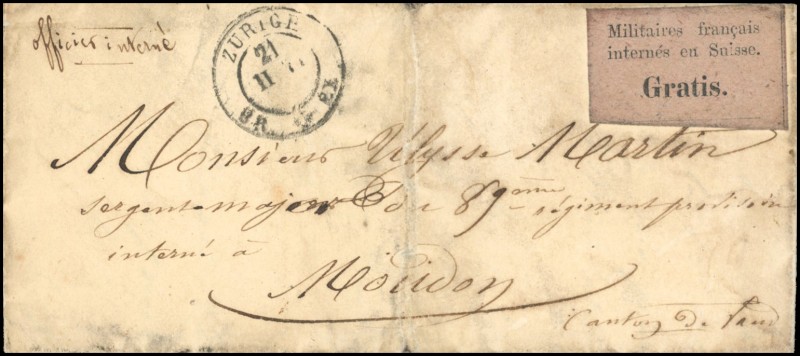 officier interné
ZURICH
21
II 71
BR. EX
Militaires français
internés en Suisse.
Gratis.
Monsieur Ulysse Martin
sergent major du 89ème régiment provisoire
interné à
Moudon
Canton de Vaud